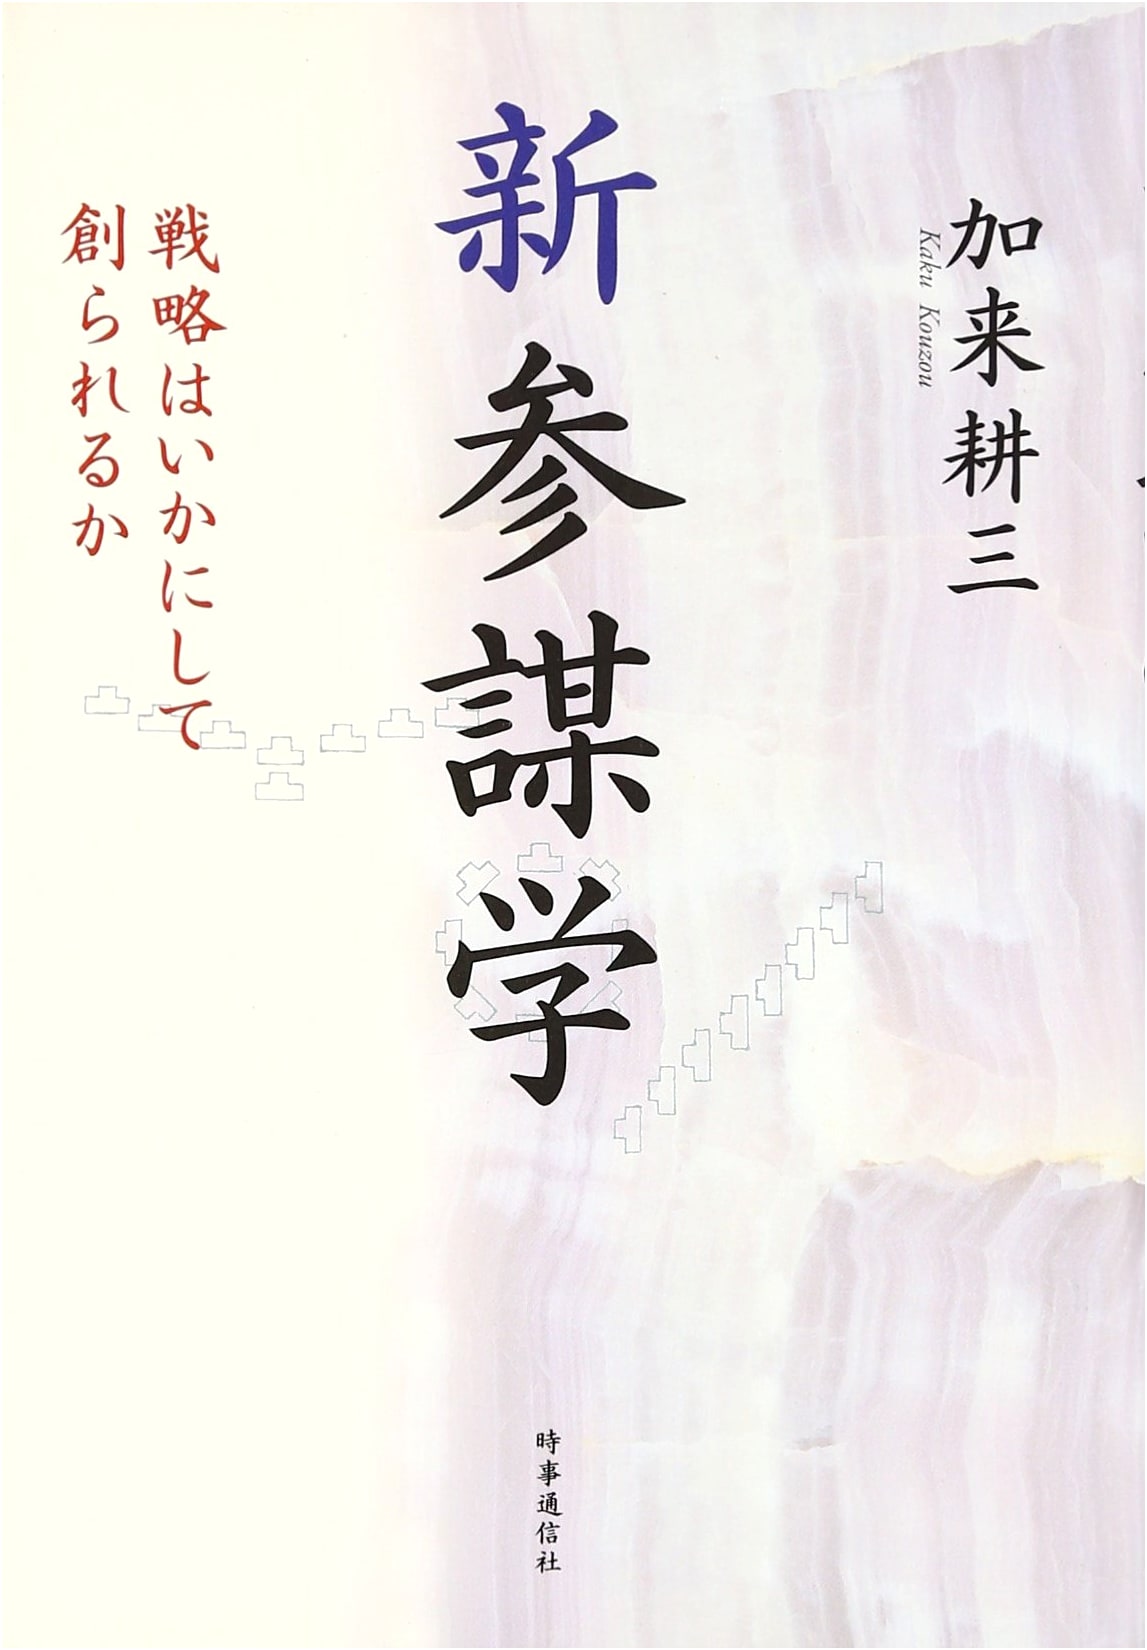 加来耕三
Kaku Kouzou
新参謀学
戦略はいかにして
創られるか
時事通信社